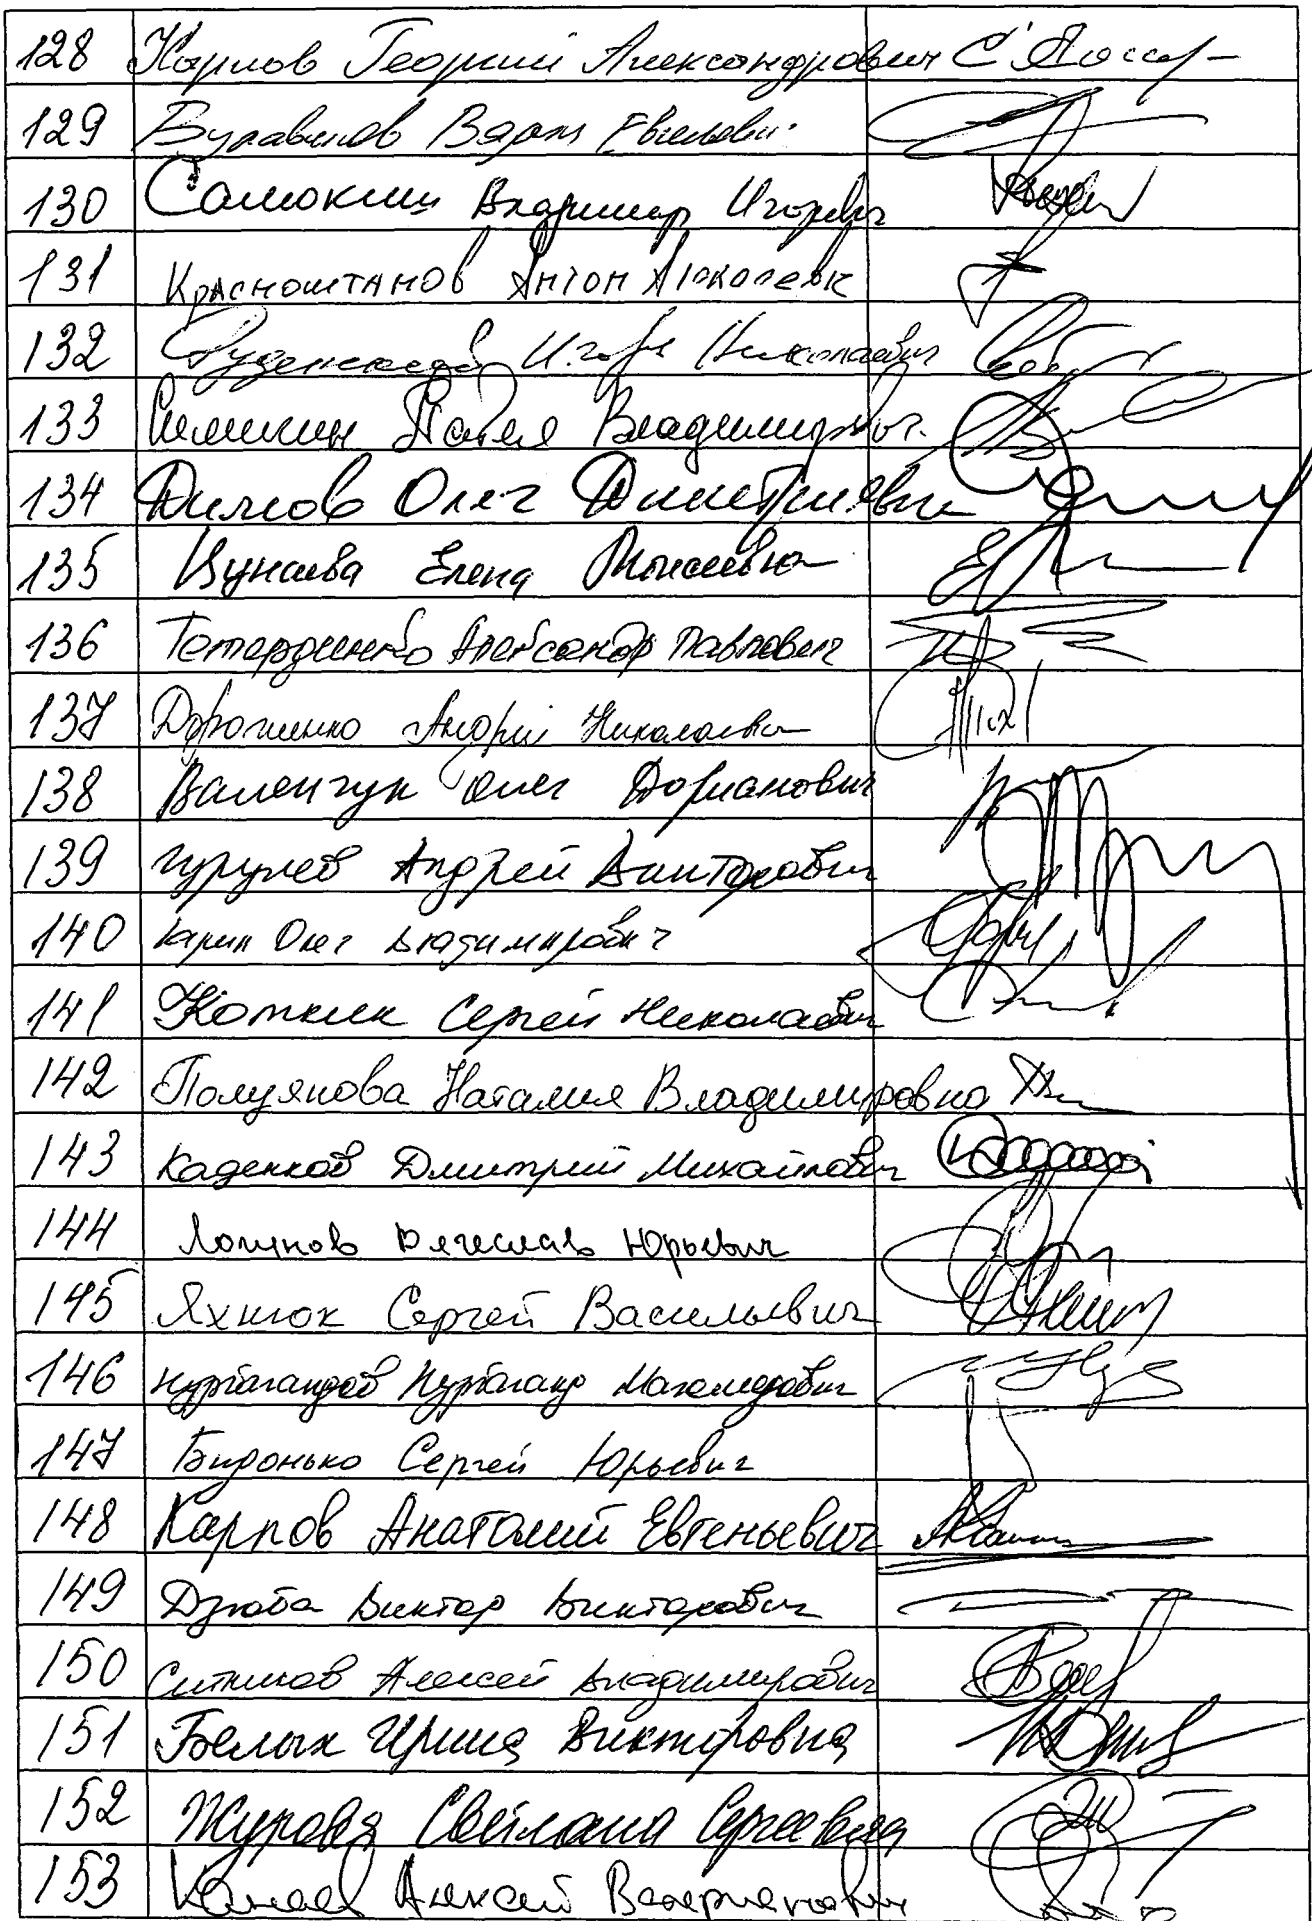 128 Карлов Георгий Александрович
129 Буравлев
130 Самокиш Владимир Игоревич
131 Красноштанов Антон Алексеевич
132 Игорь Николаевич
133 Симигин Павел Владимирович
134 Димов Олег Дмитриевич
135 Цунаева Елена Моисеевна
136 Тетердинко Александр Павлович
137 Дорошенко Андрей Николаевич
138 Валенчук Олег Дорианович
139 Гурулев Андрей Викторович
140 Карин Олег Владимирович
141 Коткин Сергей Николаевич
142 Полуянова Наталия Владимировна
143 Каденков Дмитрий Михайлович
144 Логинов Вячеслав Юрьевич
145 Яхнюк Сергей Васильевич
146 Нурбагандов Нурбаганд Магомедович
147 Бидонько Сергей Юрьевич
148 Карпов Анатолий Евгеньевич
149 Дзюба Виктор Викторович
150 Ситников Алексей Владимирович
151 Белых Ирина Викторовна
152 Журова Светлана Сергеевна
153 Канаев Алексей Валерианович